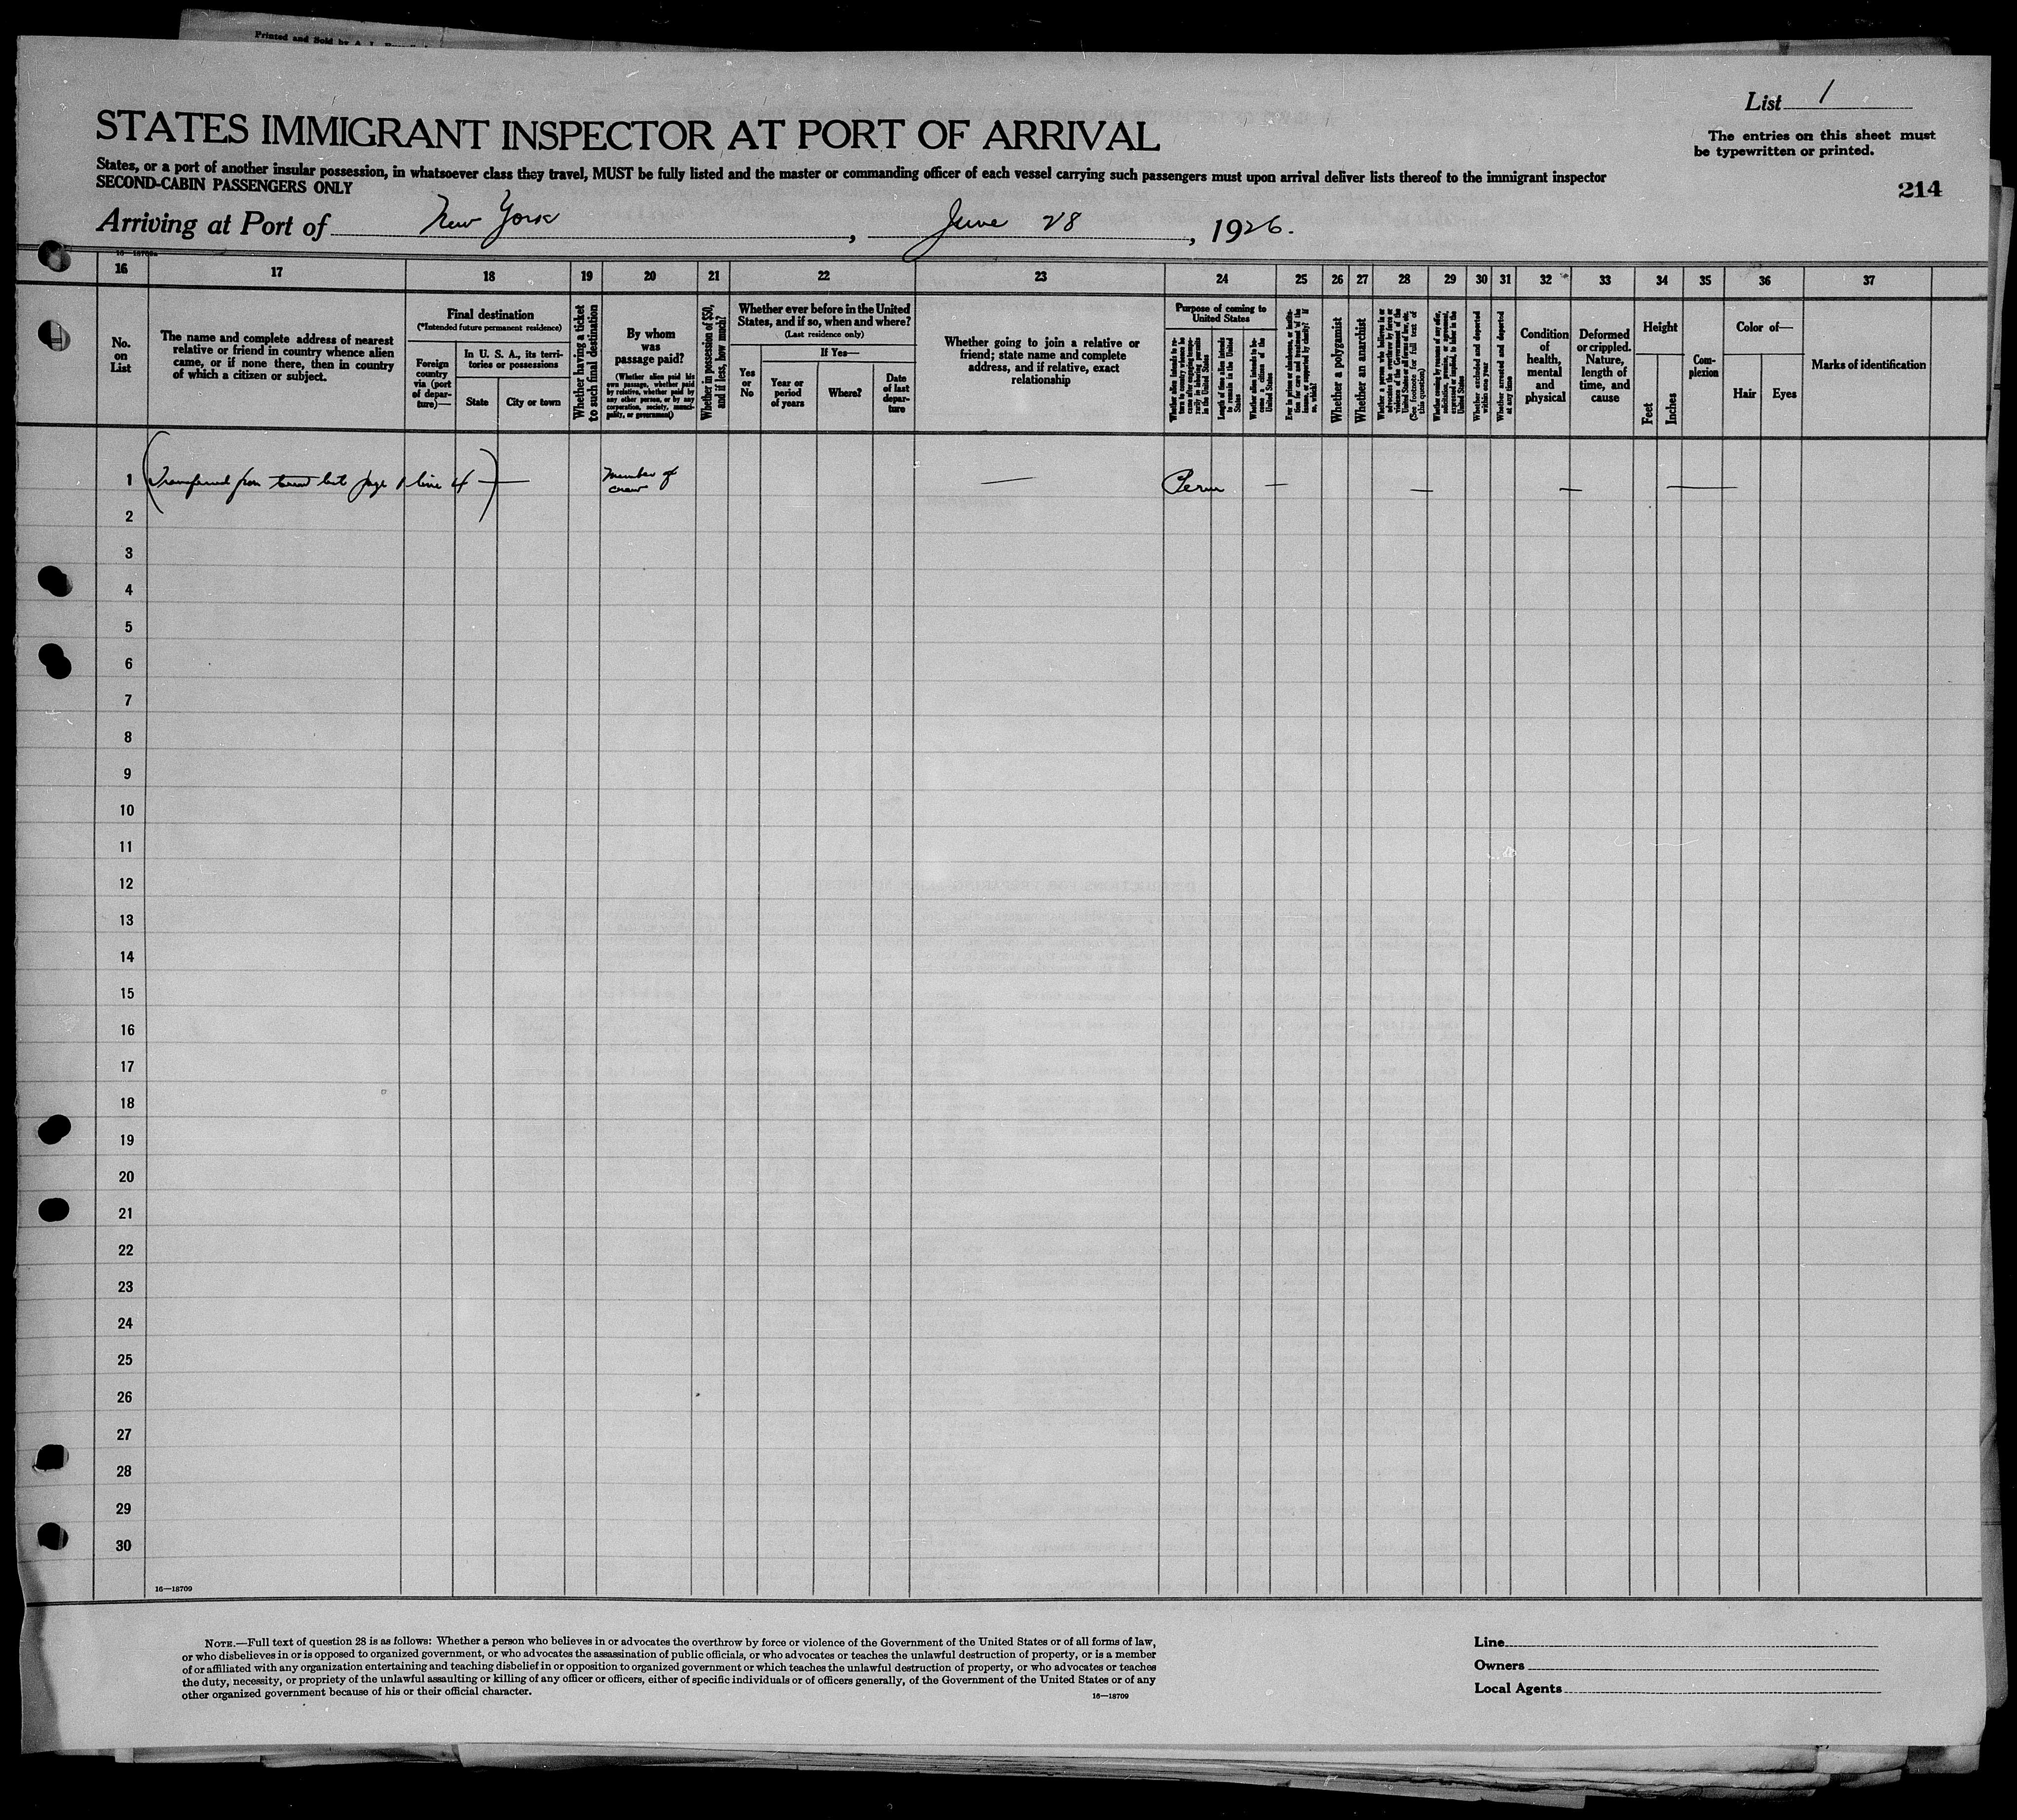 Printed and Sold by A. L.
List 1
STATES IMMIGRANT INSPECTOR AT PORT OF ARRIVAL
The entries on this sheet must
be typewritten or printed.
States, or a port of another insular possession, in whatsoever class they travel, MUST be fully listed and the master or commanding officer of each vessel carrying such passengers must upon arrival deliver lists thereof to the immigrant inspector
SECOND-CABIN PASSENGERS ONLY
214
Arriving at Port of New York, June 28, 1926.
16 17 18 19 20 21 22 23 24 25 26 27 28 29 30 31 32 33 34 35 36 37
No.
on
List
The name and complete address of nearest
relative or friend in country whence alien
came, or if none there, then in country
of which a citizen or subject.
Final destination
(*Intended future permanent residence)
Foreign
country
via (port
of depar-
ture)—
In U. S. A., its terri-
tories or possessions
State
City or town
Whether having a ticket
to such final destination
By whom
was
passage paid?
(Whether alien paid his
own passage, whether paid
by relative, whether paid by
any other person, or by any
corporation, society, munici-
pality, or government)
Whether in possession of $50,
and if less, how much?
Whether ever before in the United
States, and if so, when and where?
(Last residence only)
Yes
or
No
If Yes—
Year or
period
of years
Where?
Date
of last
depar-
ture
Whether going to join a relative or
friend; state name and complete
address, and if relative, exact
relationship
Purpose of coming to
United States
Whether alien intends to re-
turn to country whence he
came after engaging tempo-
rarily in laboring pursuits
in the United States
Length of time alien intends
to remain in the United
States
Whether alien intends to be-
come a citizen of the
United States
Ever in prison or almshouse, or institu-
tion for care and treatment of the
insane, or supported by charity? If
so, which?
Whether a polygamist
Whether an anarchist
Whether a person who believes in or
advocates the overthrow by force or
violence of the Government of the
United States or all forms of law, etc.
(See footnote for full text of
this question)
Whether coming by reason of any offer,
solicitation, promise, or agreement,
expressed or implied, to labor in the
United States
Whether excluded and deported
within one year
Whether arrested and deported
at any time
Condition
of
health,
mental
and
physical
Deformed
or crippled.
Nature,
length of
time, and
cause
Height
Feet
Inches
Com-
plexion
Color of—
Hair
Eyes
Marks of identification
1 (Transferred from page 1 line 4) — Member of — Perm — — — —
crew
2
3
4
5
6
7
8
9
10
11
12
13
14
15
16
17
18
19
20
21
22
23
24
25
26
27
28
29
30
16—18709
NOTE.—Full text of question 28 is as follows: Whether a person who believes in or advocates the overthrow by force or violence of the Government of the United States or of all forms of law,
or who disbelieves in or is opposed to organized government, or who advocates the assassination of public officials, or who advocates or teaches the unlawful destruction of property, or is a member
of or affiliated with any organization entertaining and teaching disbelief in or opposition to organized government or which teaches the unlawful destruction of property, or who advocates or teaches
the duty, necessity, or propriety of the unlawful assaulting or killing of any officer or officers, either of specific individuals or of officers generally, of the Government of the United States or of any
other organized government because of his or their official character.
16—18709
Line
Owners
Local Agents